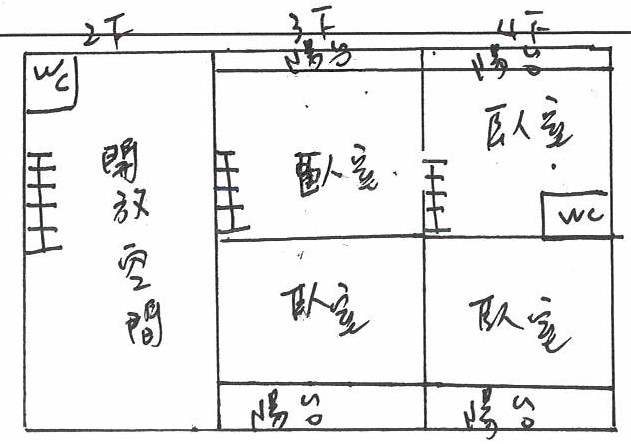 2F
3F
4F
WC
陽台
陽台
開放空間
臥室
臥室
WC
臥室
臥室
陽台
陽台